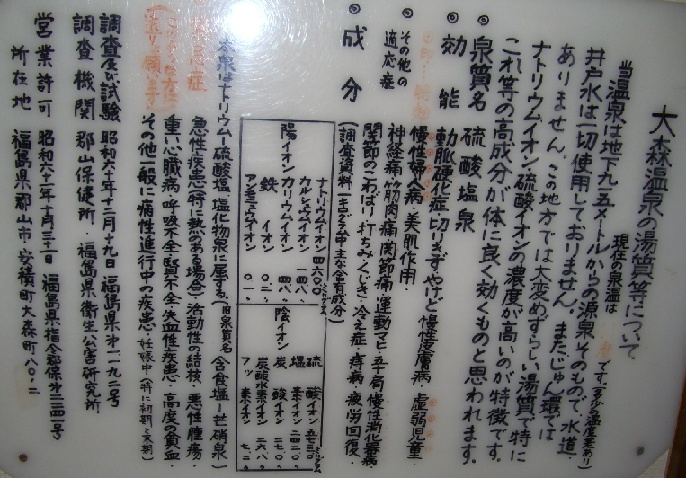 大森温泉の湯質等について
現在の泉温は
です(多少温度差あり)
当温泉は地下九一五メールからの源泉そのもので、水道・
井戸水は一切使用しておりません。またじゅん環では
ありません。この地方では大変めずらしい湯質で特に
ナトリウムイオン硫酸イオンの濃度が高いのが特徴です。
これ等の高成分が体に良く効くものと思われます。
◎泉質名 硫酸塩泉
◎効能 動脈硬化症・切りきず・やけど・慢性皮膚病・虚弱児童・
慢性婦人病 美肌作用・
◎その他の適応症 神経痛・筋肉痛・関節痛・運動マヒ・五十肩・慢性消化器病・
関節のこわばり・打ちみ・くじき・冷え症・痔病・疲労回復・
◎成分 (調査資料一キログラム中主な含有成分)
陽イオン
ナトリウムイオン
カルシュウムイオン
カリウムイオン
鉄イオン
アンモニュウムイオン
陰イオン
硫酸イオン
塩素イオン
炭酸イオン
炭酸水素イオン
フッ素イオン
本泉はナトリウム―硫酸塩・塩化物泉に属する(旧泉質名 含食塩―芒硝泉)
急性疾患(特に熱のある場合)活動性の結核、悪性腫瘍・
重い心臓病・呼吸不全・腎不全・出血性疾患・高度の貧血・
その他一般に病性進行中の疾患、妊娠中(特に初期と末期)
調査及び試験 昭和六十年十二月十九日 福島県第一一九二号
調査機関 郡山保健所・福島県衛生公害研究所
営業許可 昭和六十一年十月三十一日 福島県指令郡保第二三四一号
所在地 福島県郡山市安積町大森町八〇-二